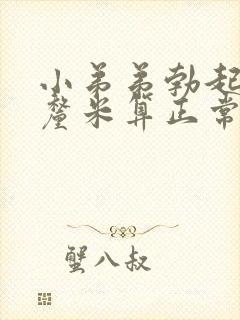 小弟弟勃起
釐米算正常
蟹八叔